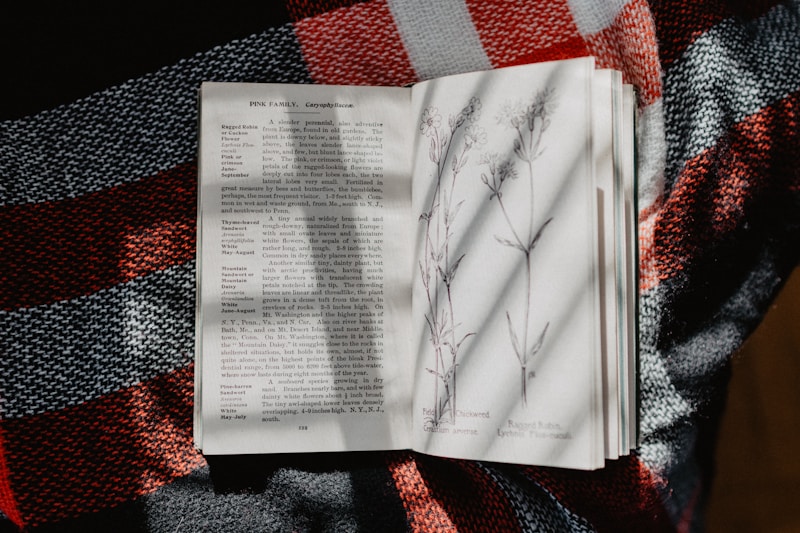 PINK FAMILY. Caryophyllaceæ.
Ragged Robin
or Cuckoo
Flower
Lychnis Flos-
cuculi
Pink or
crimson
June-
September
A slender perennial, also adventive
from Europe, found in old gardens. The
plant is downy below, and slightly sticky
above, the leaves slender lance-shaped
above, and few, but blunt lance-shaped be-
low. The pink, or crimson, or light violet
petals of the ragged-looking flowers are
deeply cut into four lobes each, the two
lateral lobes very small. Fertilized in
great measure by bees and butterflies, the bumblebee,
perhaps, the most frequent visitor. 1-2 feet high. Com-
mon in wet and waste ground, from Me., south to N. J.,
and southwest to Penn.
Thyme-leaved
Sandwort
Arenaria
serpyllifolia
White
May-August
A tiny annual widely branched and
rough-downy, naturalized from Europe;
with small ovate leaves and miniature
white flowers, the sepals of which are
rather long, and rough. 2-8 inches high.
Common in dry sandy places everywhere.
Mountain
Sandwort or
Mountain
Daisy
Arenaria
Groenlandica
White
June-August
Another similar tiny, dainty plant, but
with arctic proclivities, having much
larger flowers with translucent white
petals notched at the tip. The crowding
leaves are linear and threadlike, the plant
grows in a dense tuft from the root, in
crevices of rocks. 2-5 inches high. On
Mt. Washington and the higher peaks of
N. Y., Penn., Va., and N. Car. Also on river banks at
Bath, Me., and on Mt. Desert Island, and near Middle-
town, Conn. On Mt. Washington, where it is called
the "Mountain Daisy," it snuggles close to the rocks in
sheltered situations, but holds its own, almost, if not
quite alone, on the highest points of the bleak Presi-
dential range, from 5000 to 6200 feet above tide-water,
where snow lasts during eight months of the year.
Pine-barren
Sandwort
White
May-July
A seaboard species growing in dry
sand. Branches nearly bare, and with few
dainty white flowers about ½ inch broad.
The tiny awl-shaped lower leaves densely
overlapping. 4-9 inches high. N. Y., N. J.,
south.
Field Chickweed.
Cerastium arvense.
Ragged Robin.
Lychnis Flos-cuculi.